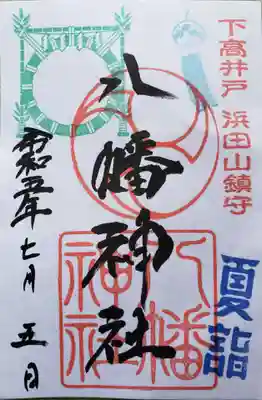 下高井戸 浜田山鎮守
八幡神社
八幡神社
夏詣
令和五年 七月 五日